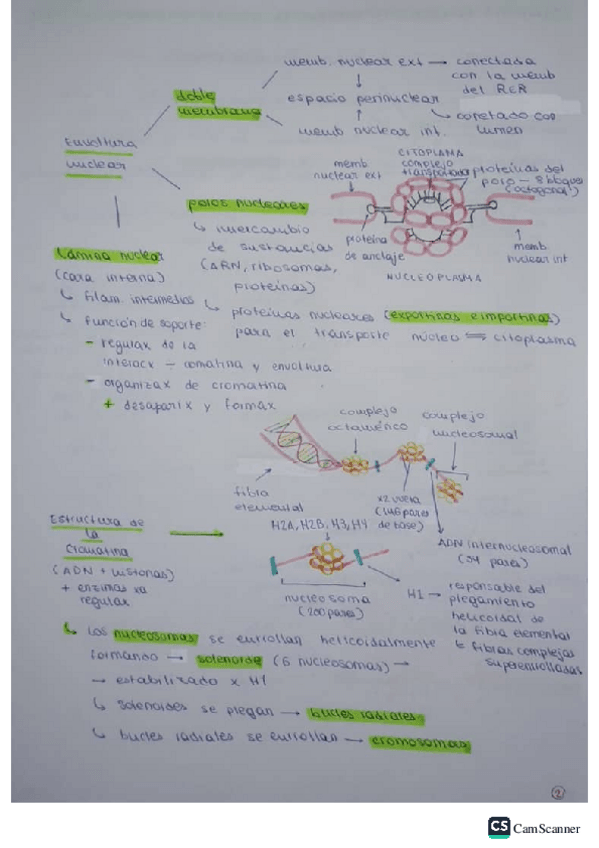 Envoltura
nuclear
doble
membrana
memb. nuclear ext → conectada
con la memb
del RER
espacio perinuclear
conetado con
lumen
memb nuclear int.
poros nucleares
↳ intercambio
de sustancias
(ARN, ribosomas,
proteínas)
↳ proteínas nucleares (exportinas e importinas)
para el transporte núcleo ⇌ citoplasma
CITOPLASMA
complejo
transportador
proteínas del
poro - 8 bloques
(octogonal)
memb
nuclear ext
proteína
de anclaje
NUCLEOPLASMA
memb
nuclear int
Lámina nuclear
(cara interna)
↳ Filam. intermedios
↳ Función de soporte:
- regulax de la
interacx - cromatina y envoltura
- organizax de cromatina
+ desaparix y formax
complejo
octamérico
complejo
nucleosomal
fibra
elemental
x2 vuelta
(146 pares
de base)
H2A, H2B, H3, H4
ADN internucleosomal
(54 pares)
nucleosoma
(200 pares)
H1 → responsable del
plegamiento
helicoidal de
la fibra elemental
fibras complejas
superenrolladas
Estructura de
la
Cromatina
(ADN + histonas)
+ enzimas xa
regular
↳ Los nucleosomas se enrollan helicoidalmente
formando → solenoide (6 nucleosomas) →
→ estabilizado x H1
↳ Solenoides se plegan → bucles radiales
↳ bucles radiales se enrollan → cromosomas
2
CS CamScanner